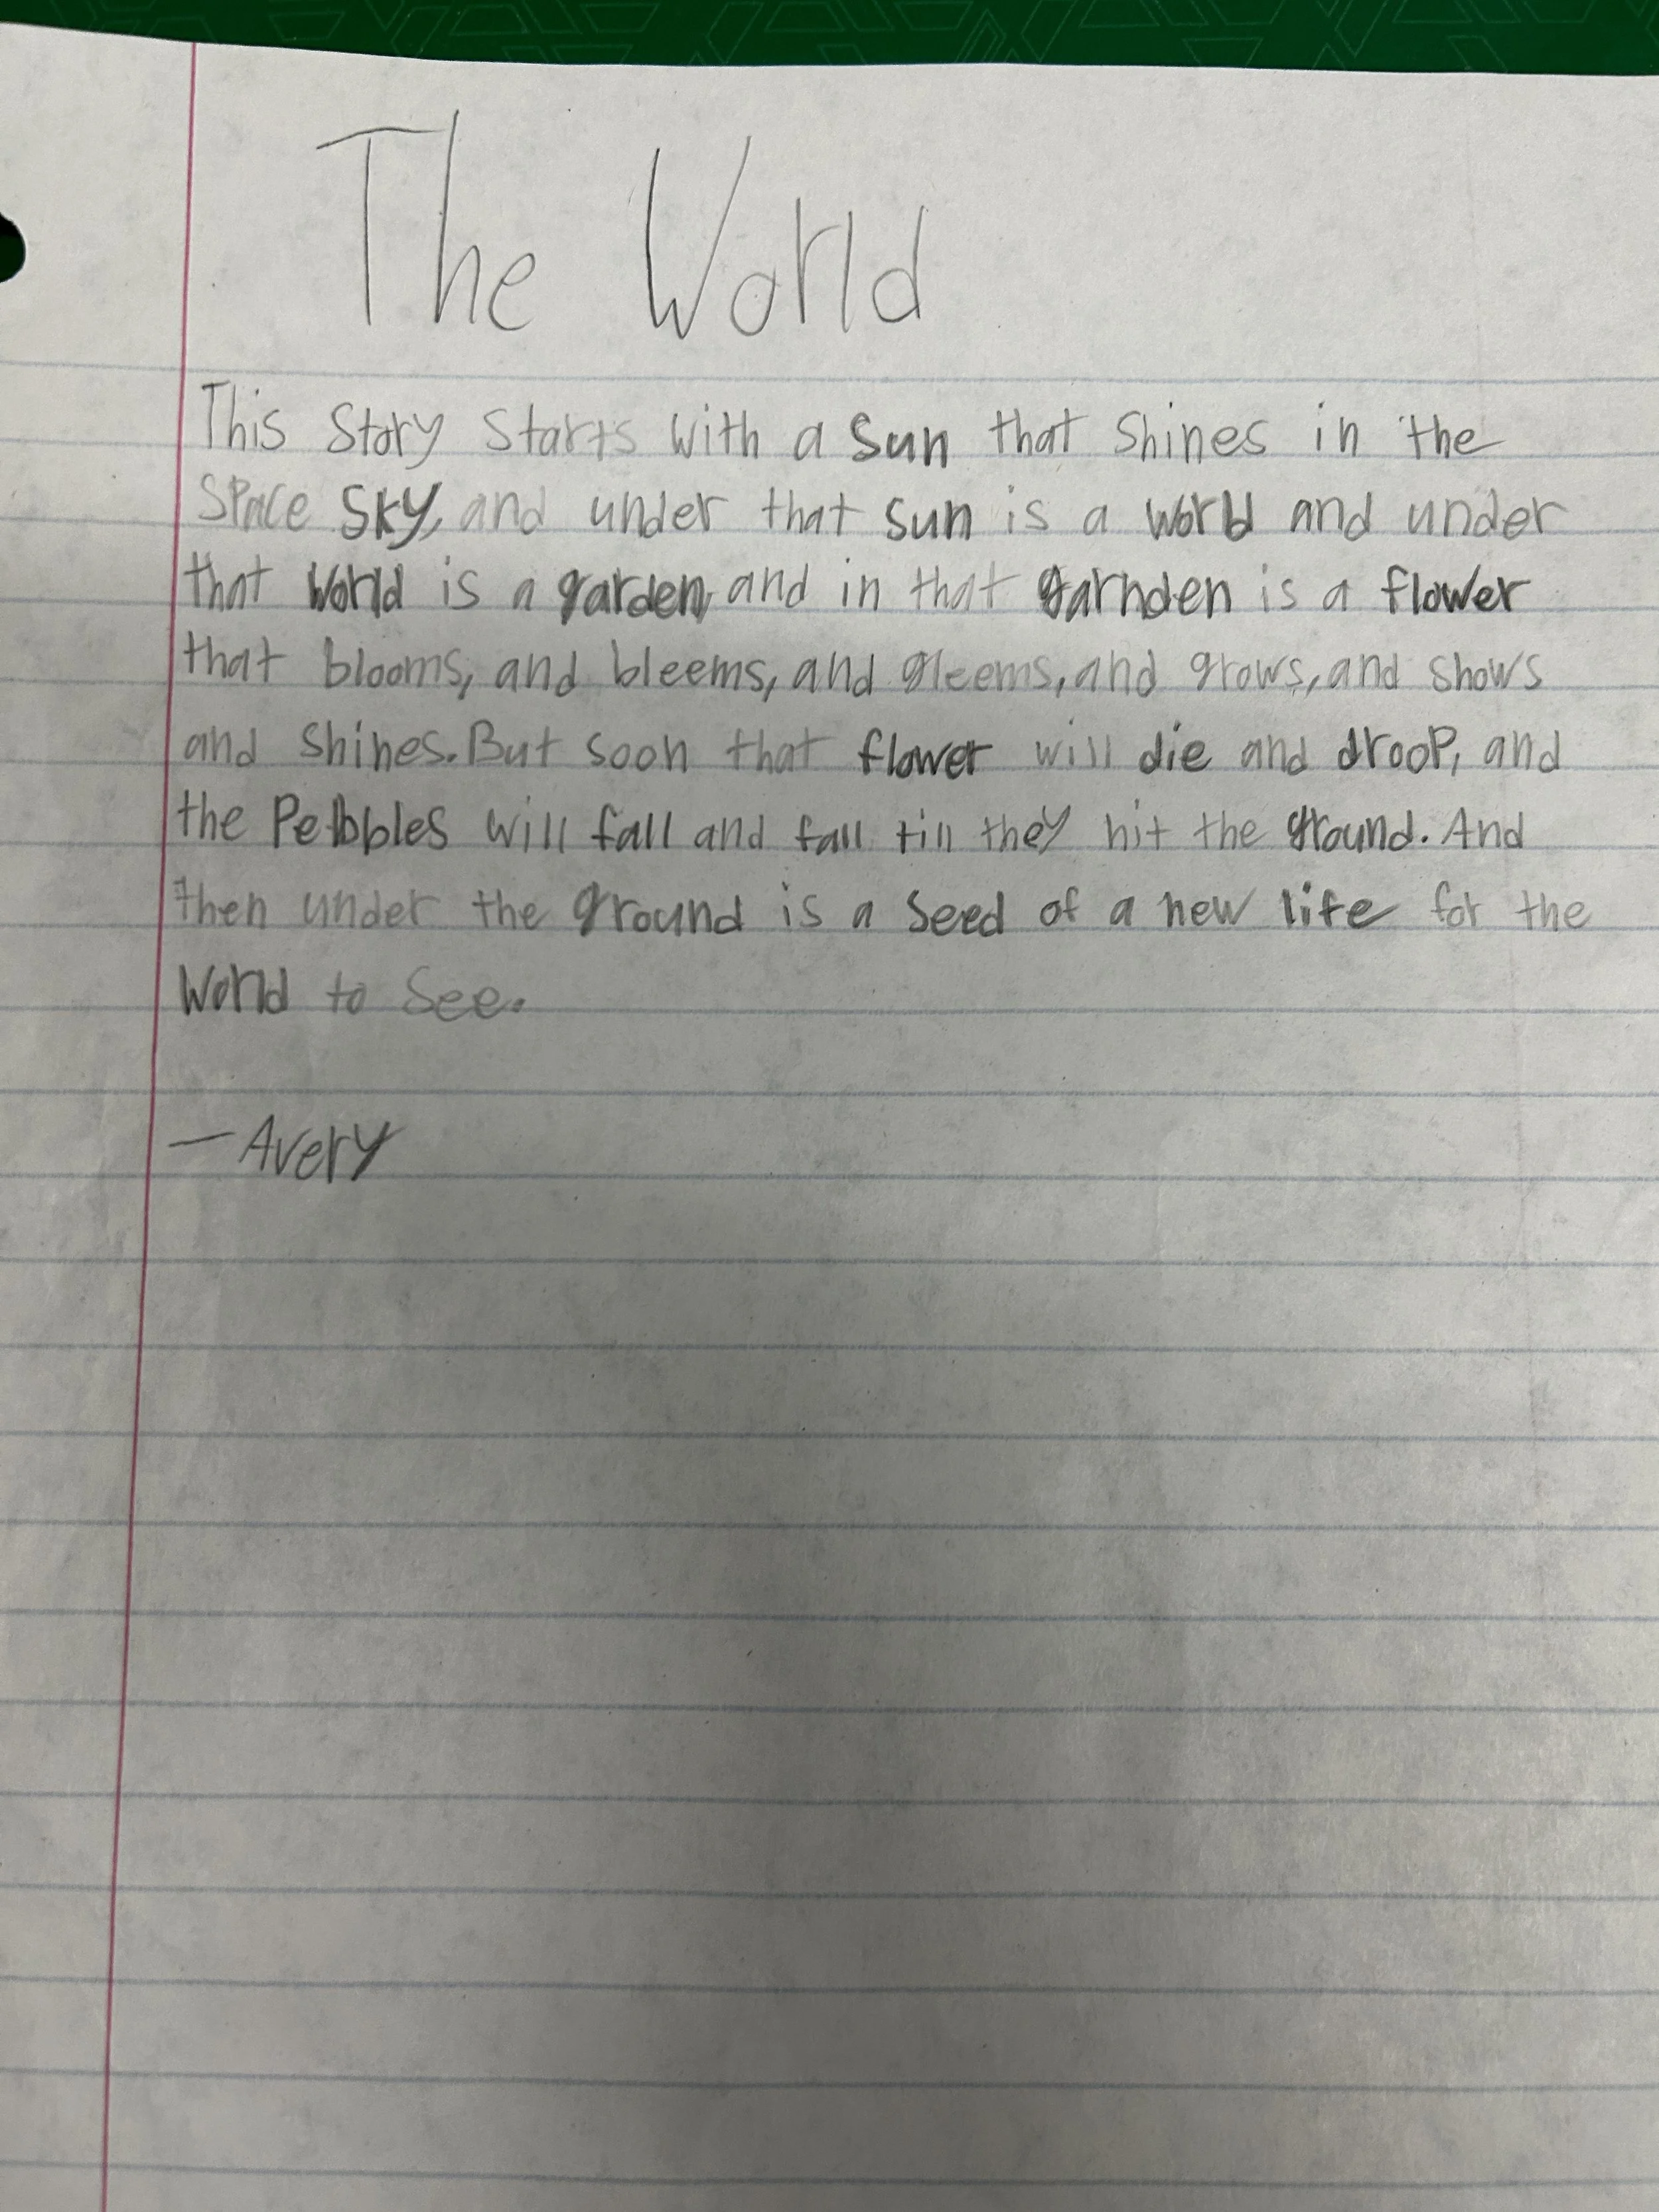 The World
This Story Starts with a Sun that Shines in the
Space Sky, and under that sun is a world and under
that World is a garden, and in that garnden is a flower
that blooms, and bleems, and gleems, and grows, and shows
and shines. But soon that flower will die and droop, and
the Pebbles will fall and fall till they hit the ground. And
then under the ground is a Seed of a new life for the
World to See.
—Avery